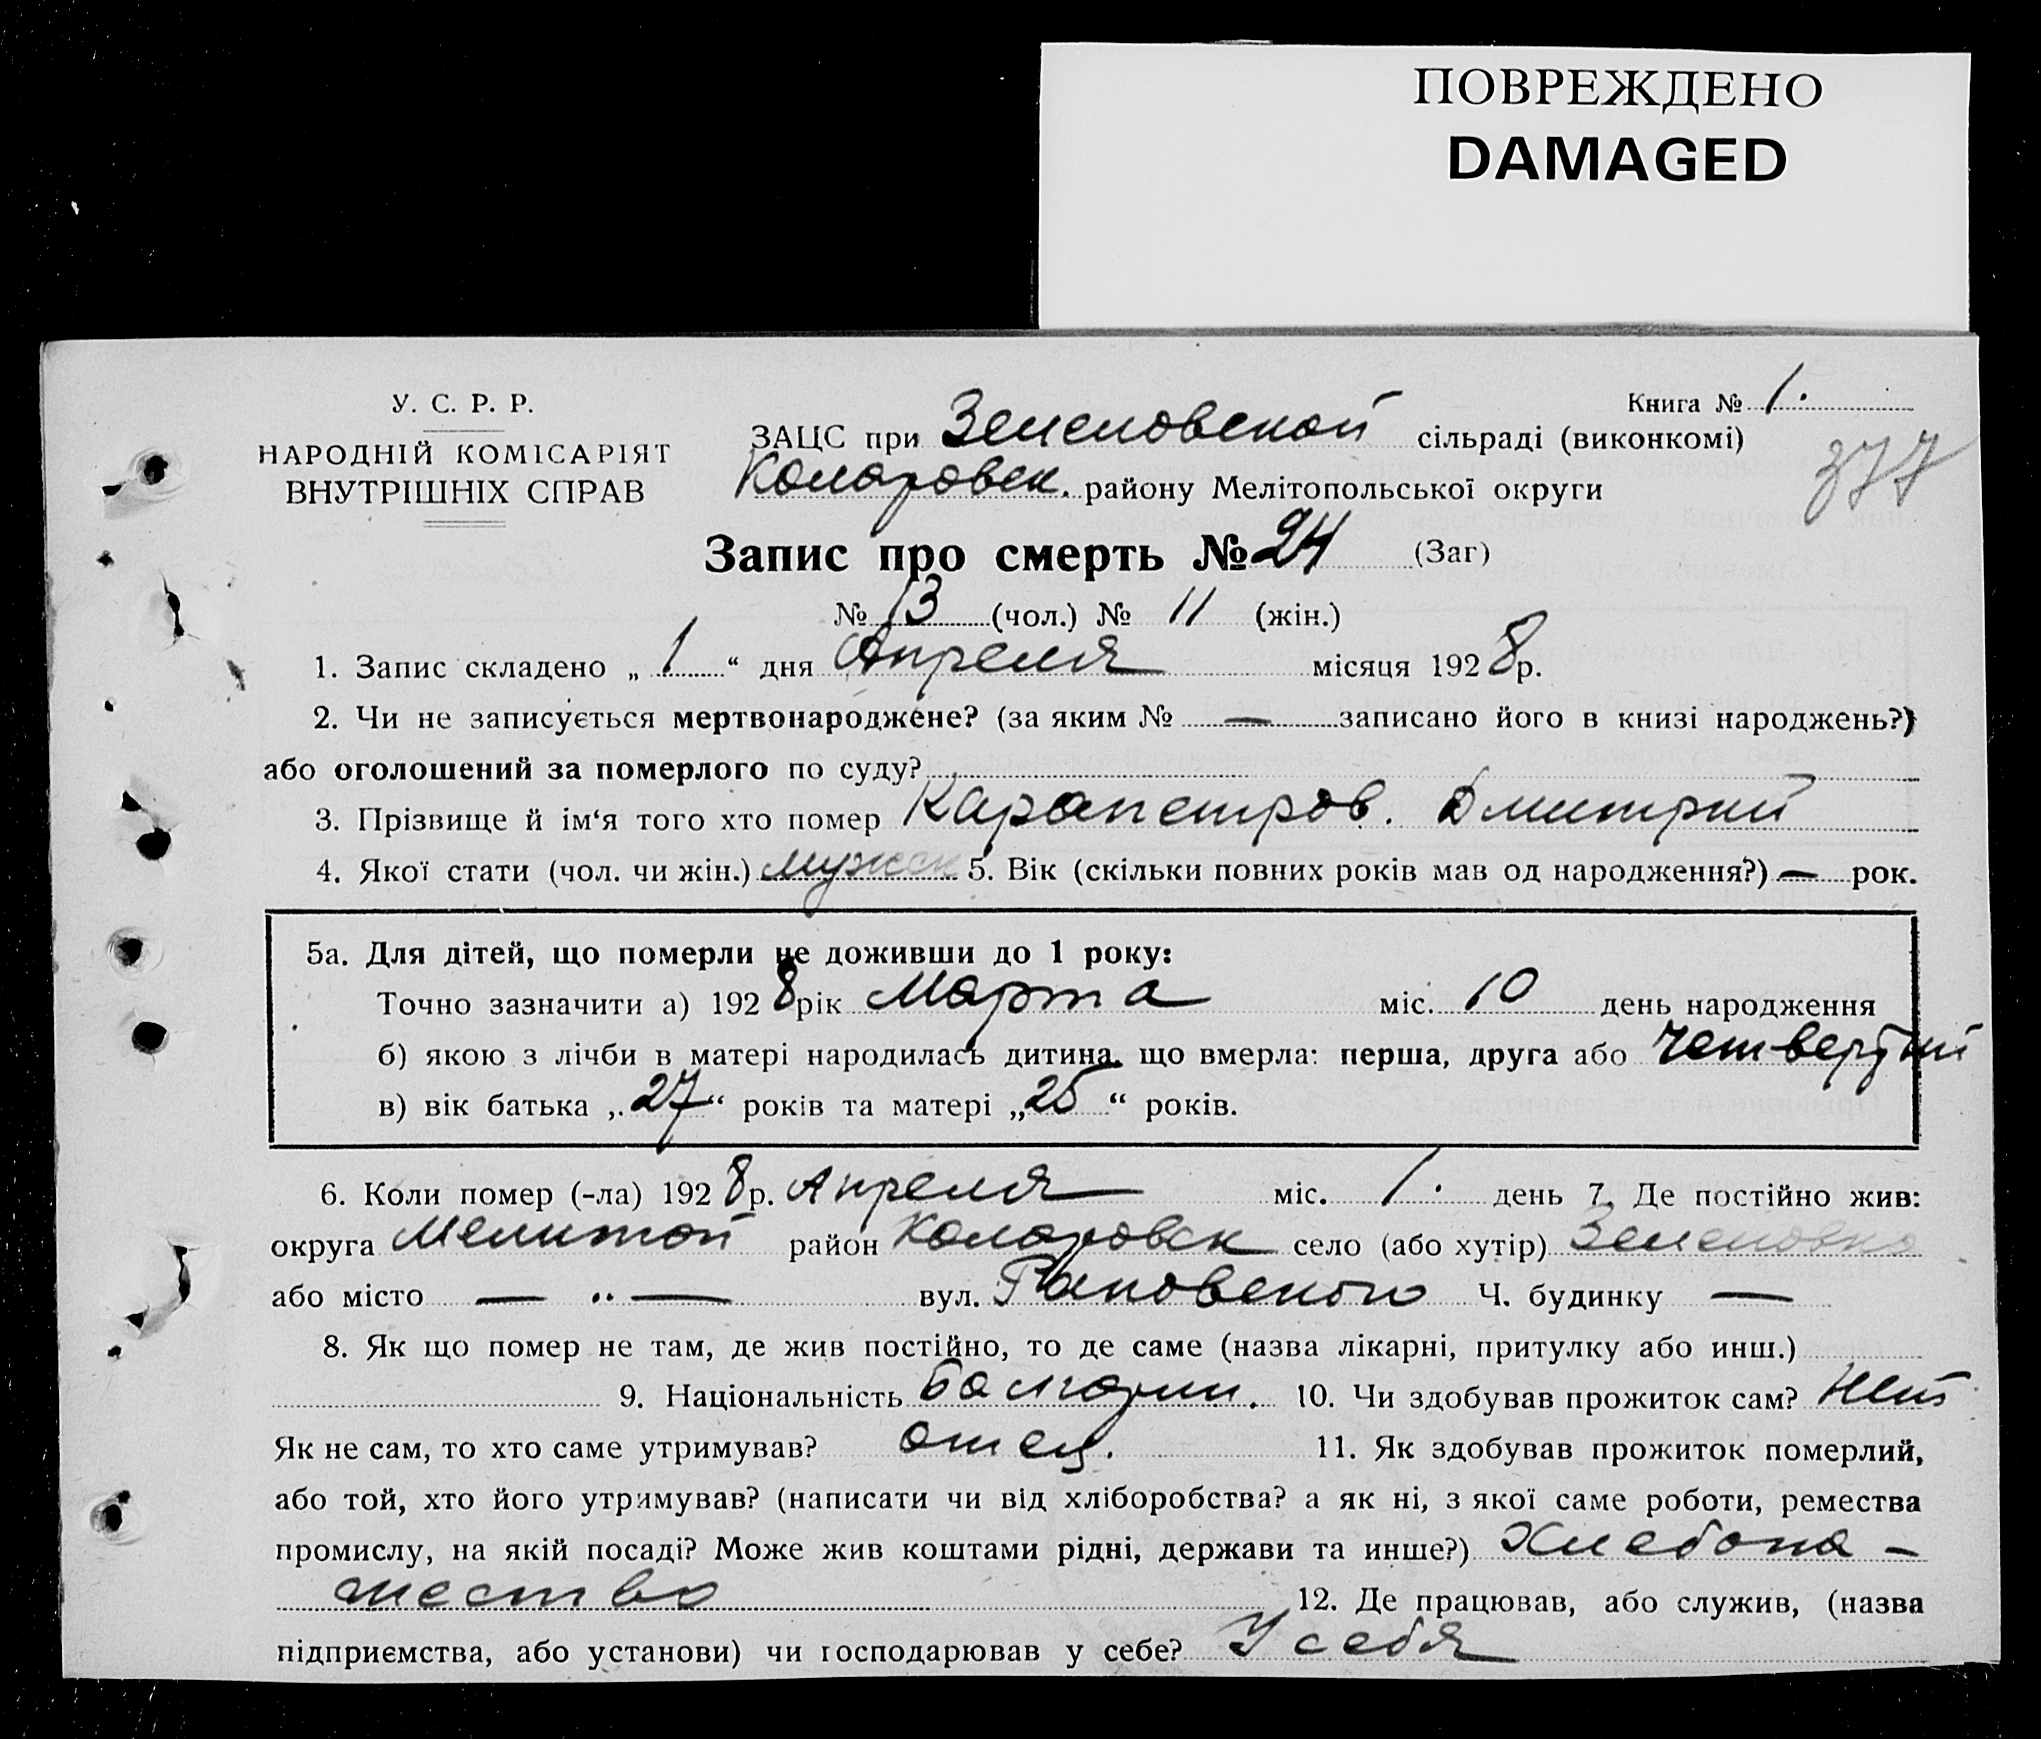 ПОВРЕЖДЕНО
DAMAGED
У. С. Р. Р.
НАРОДНІЙ КОМІСАРІЯТ
ВНУТРІШНІХ СПРАВ
Книга № 1.
ЗАЦС при Зеленовской сільраді (виконкомі)
Коларовск. району Мелітопольської округи
377
Запис про смерть № 24 (Заг)
№ 13 (чол.) № 11 (жін.)
1. Запис складено „ 1 “ дня Апреля місяця 1928 р.
2. Чи не записується мертвонароджене? (за яким № — записано його в книзі народжень?)
або оголошений за померлого по суду?
3. Прізвище й ім‘я того хто помер Карапетров. Дмитрий
4. Якої стати (чол. чи жін.) мужск 5. Вік (скільки повних років мав од народження?) — рок.
5а. Для дітей, що померли не доживши до 1 року:
Точно зазначити а) 1928 рік Марта міс. 10 день народження
б) якою з лічби в матері народилась дитина, що вмерла: перша, друга або четвертый
в) вік батька „ 27 “ років та матері „ 25 “ років.
6. Коли помер (-ла) 1928 р. Апреля міс. 1. день 7. Де постійно жив:
округа Мелитоп район Коларовск село (або хутір) Зеленовка
або місто — „ — вул. Раковского Ч. будинку —
8. Як що помер не там, де жив постійно, то де саме (назва лікарні, притулку або инш.)
9. Національність Болгарин. 10. Чи здобував прожиток сам? Нет
Як не сам, то хто саме утримував? отец. 11. Як здобував прожиток померлий,
або той, хто його утримував? (написати чи від хліборобства? а як ні, з якої саме роботи, ремества
промислу, на якій посаді? Може жив коштами рідні, держави та инше?) Хлебопа-
шество 12. Де працював, або служив, (назва
підприємства, або установи) чи господарював у себе? У себя